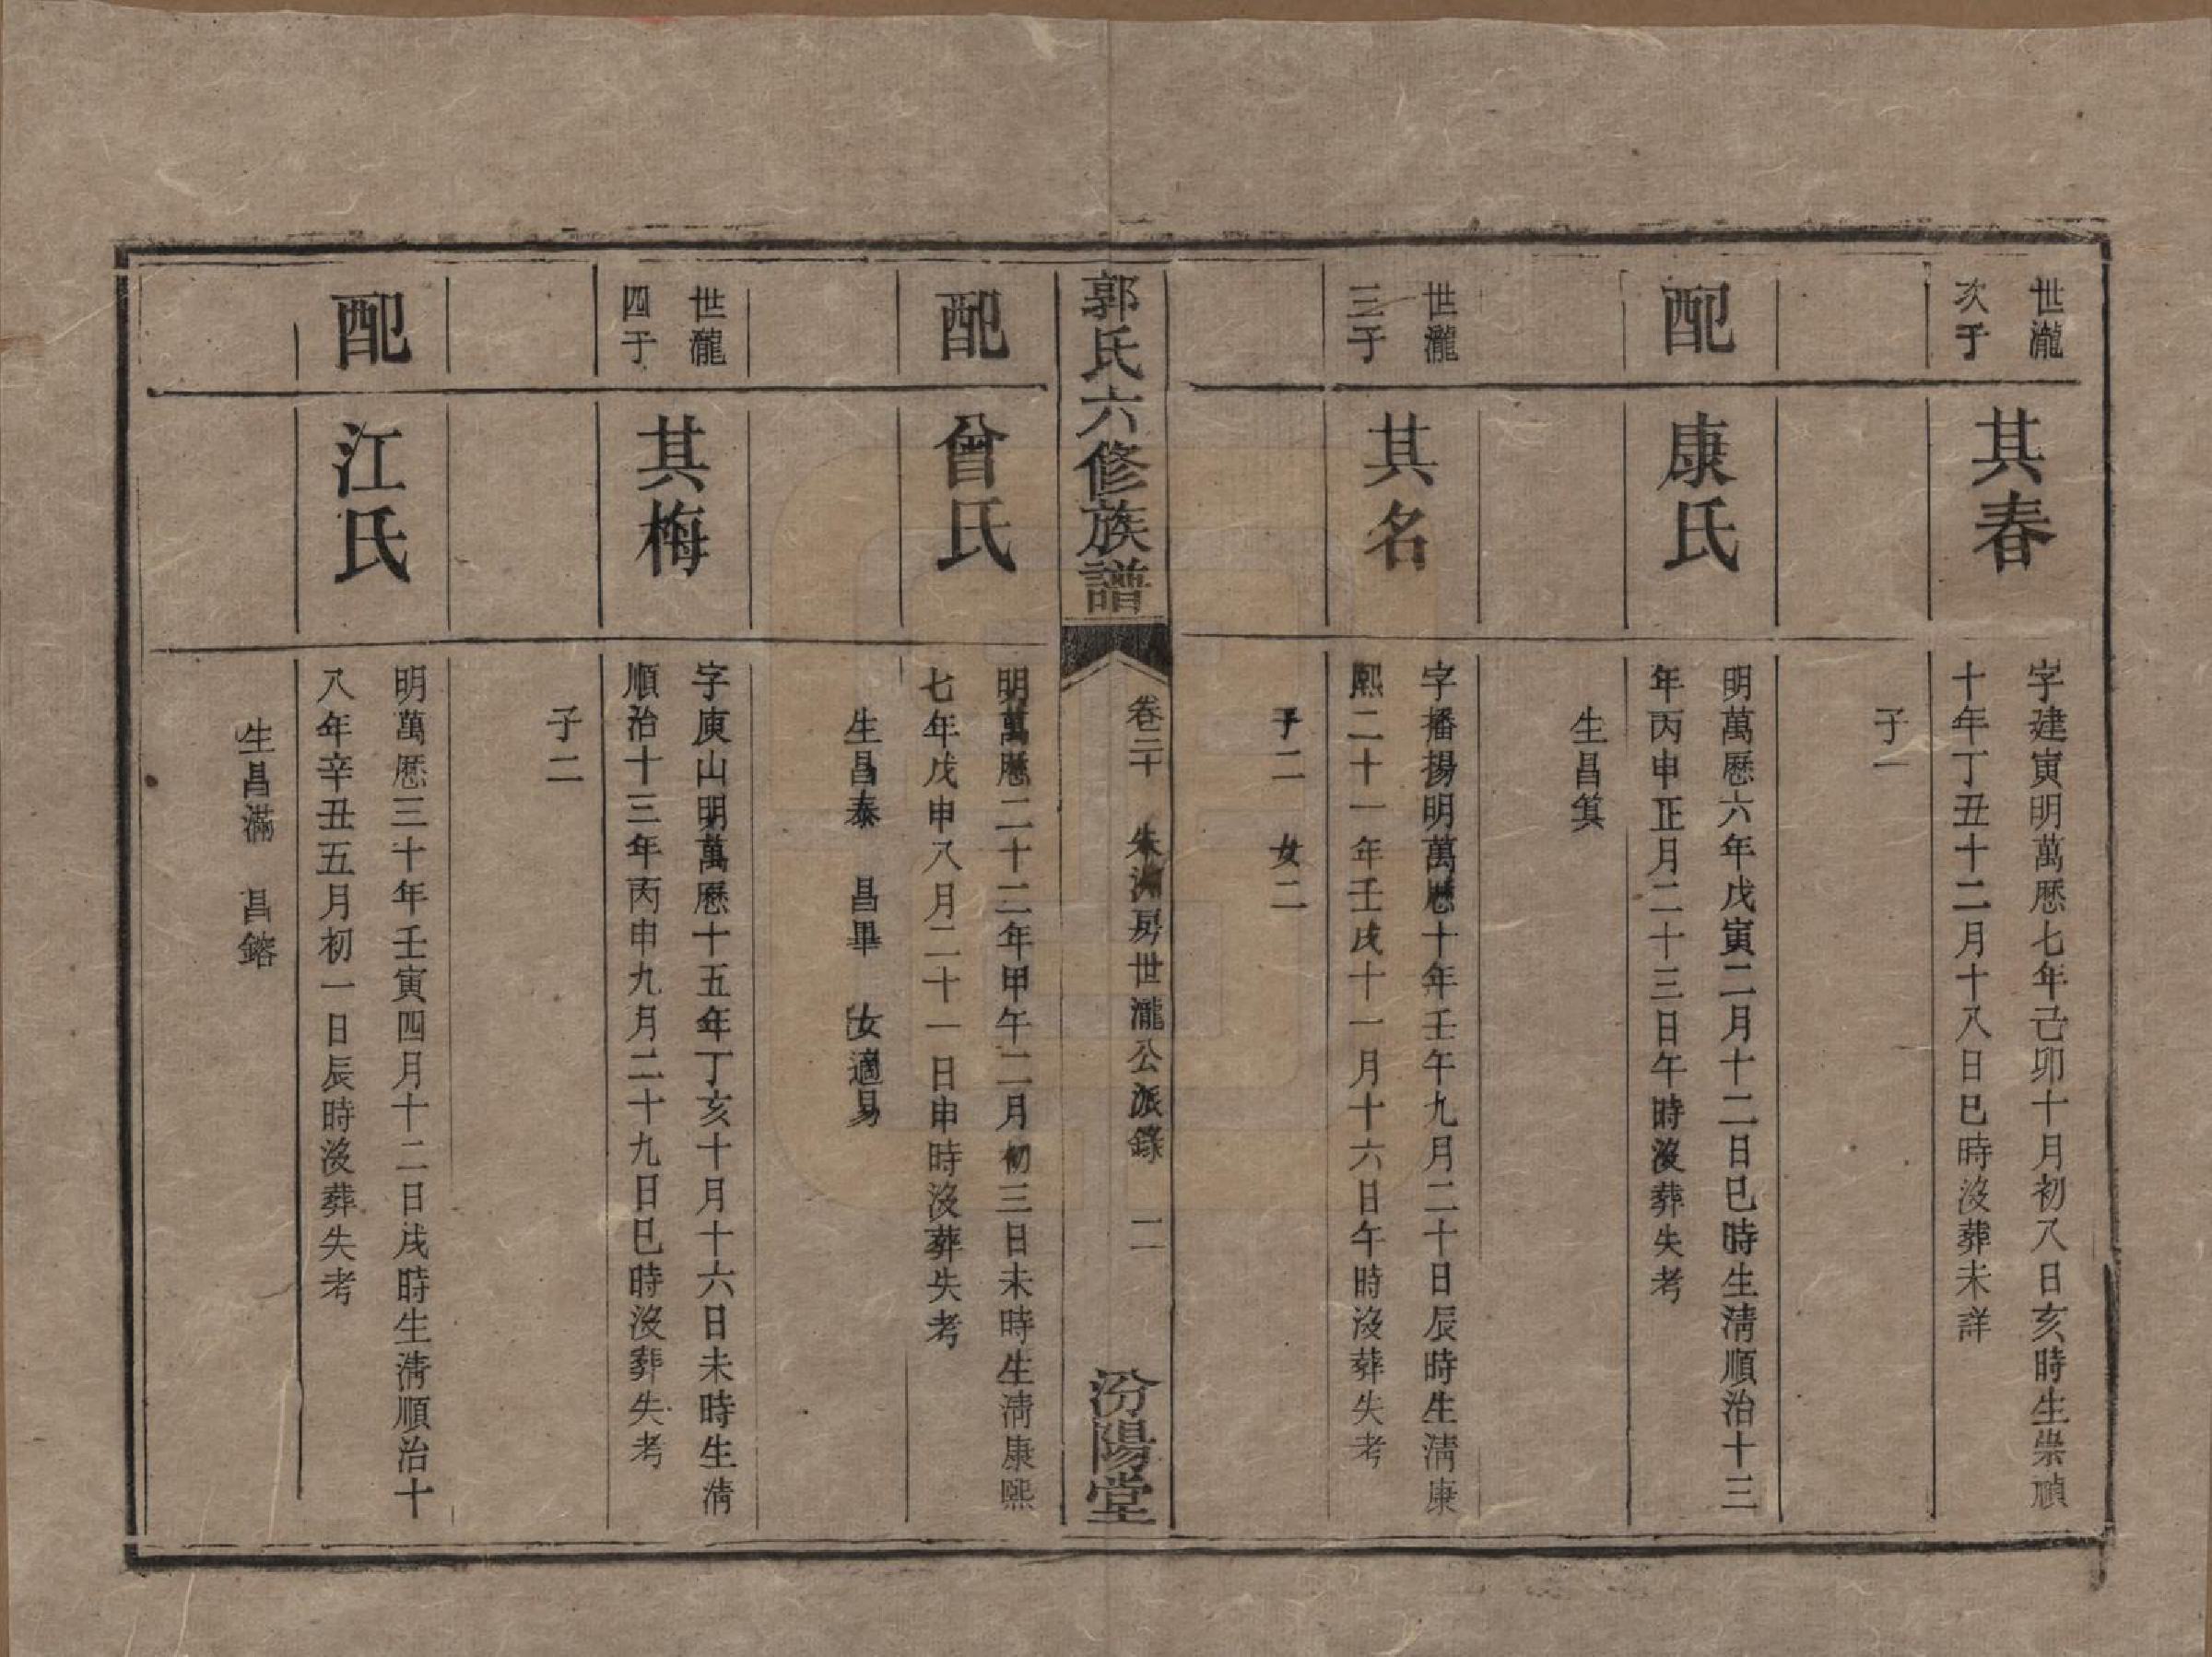 世瀧
次子
其春
字建寅明萬歷七年己卯十月初八日亥時生崇禎
十年丁丑十二月十八日巳時沒葬未詳
子一
配
康氏
明萬歷六年戊寅二月十二日巳時生淸順治十三
年丙申正月二十三日午時沒葬失考
生昌箕
世瀧
三子
其名
字播揚明萬歷十年壬午九月二十日辰時生淸康
熙二十一年壬戌十一月十六日午時沒葬失考
子二 女二
郭氏六修族譜
卷三十 朱 房世瀧公派錄 二
汾陽堂
配
曾氏
明萬歷二十二年甲午二月初三日未時生淸康熙
七年戊申八月二十一日申時沒葬失考
生昌泰 昌畢 女適易
世瀧
四子
其梅
字庾山明萬歷十五年丁亥十月十六日未時生淸
順治十三年丙申九月二十九日巳時沒葬失考
子二
配
江氏
明萬歷三十年壬寅四月十二日戌時生淸順治十
八年辛丑五月初一日辰時沒葬失考
生昌滿 昌鎔